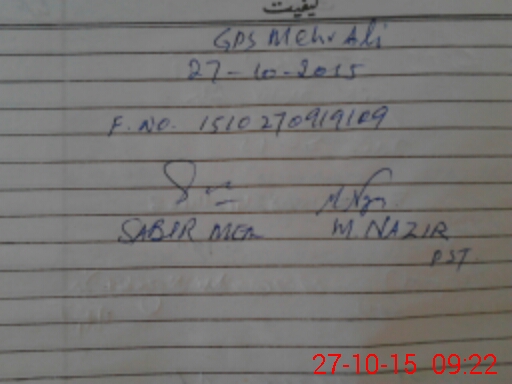 کیفیت
GPS Mehr Ali
27-10-2015
F.NO. 1510270919109
SABIR MEA
M. NAZIR
PST.
27-10-15 09:22